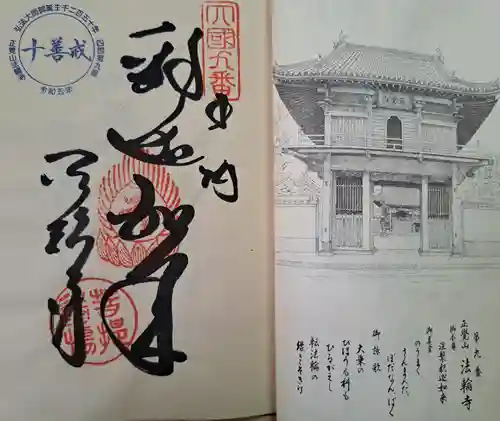 弘法大師御誕生千二百五十年
十善戒
令和五年
四國九番
奉納
釈迦如来
法輪寺
第九番
正覚山 法輪寺
御本尊
涅槃釈迦如来
御真言
のうまく
さんまんだ
ぼだなんばく
御詠歌
大乗の
ひほうも科も
ひるがえし
転法輪の
縁とこそきけ